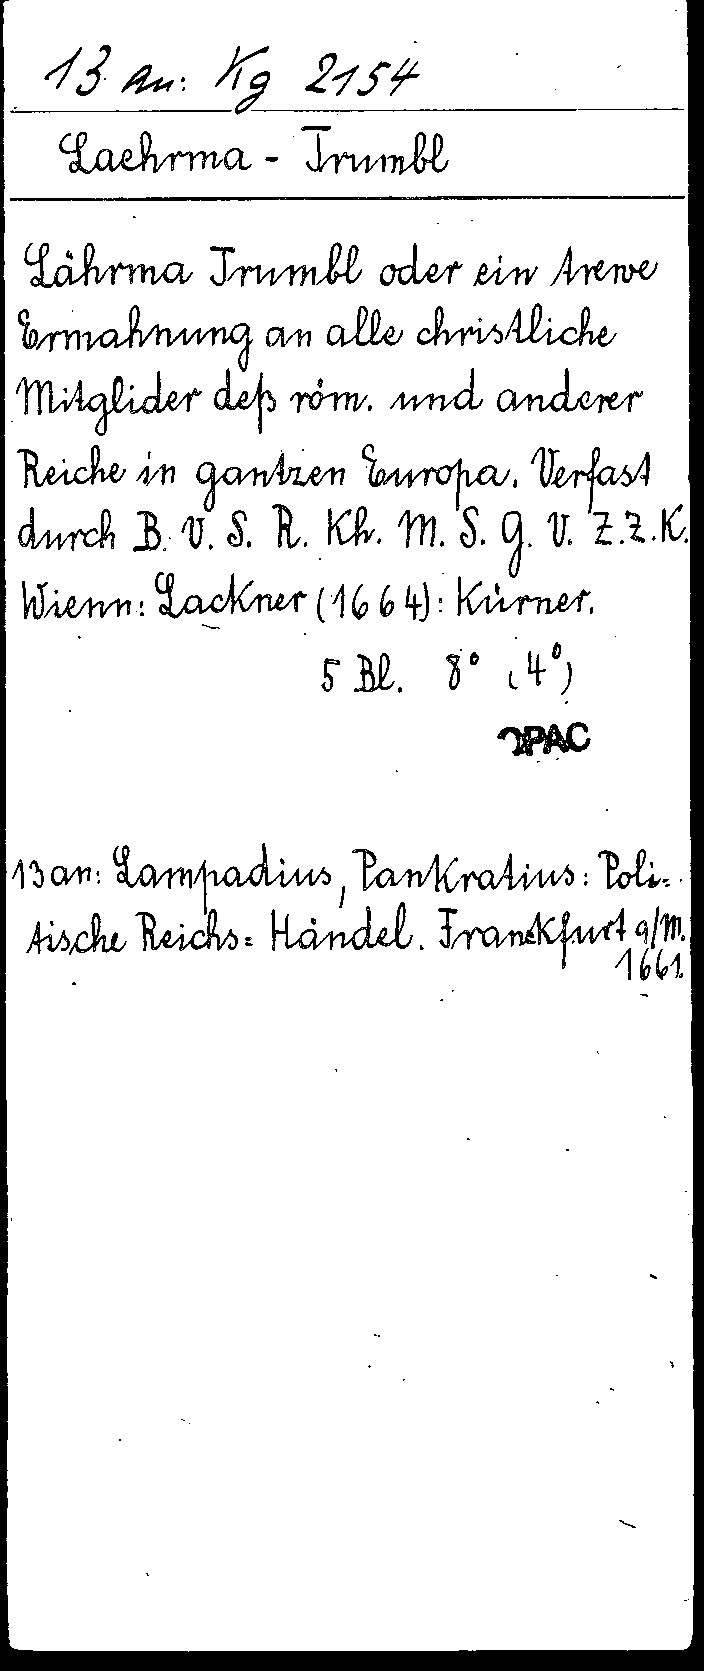 13 an: Kg 2154
Laehrma - Trumbl
Lährma Trumbl oder ein trewe
Ermahnung an alle christliche
Mitglider deß röm. und anderer
Reiche in gantzen Europa. Verfast
durch B. V. S. R. Kh. M. S. G. V. Z. Z. K.
Wienn: Lackner (1664): Kürner.
5 Bl. 8° (4°)
OPAC
13 an: Lampadius, Pankratius: Poli=
tische Reichs= Händel. Franckfurt a/M.
1661.